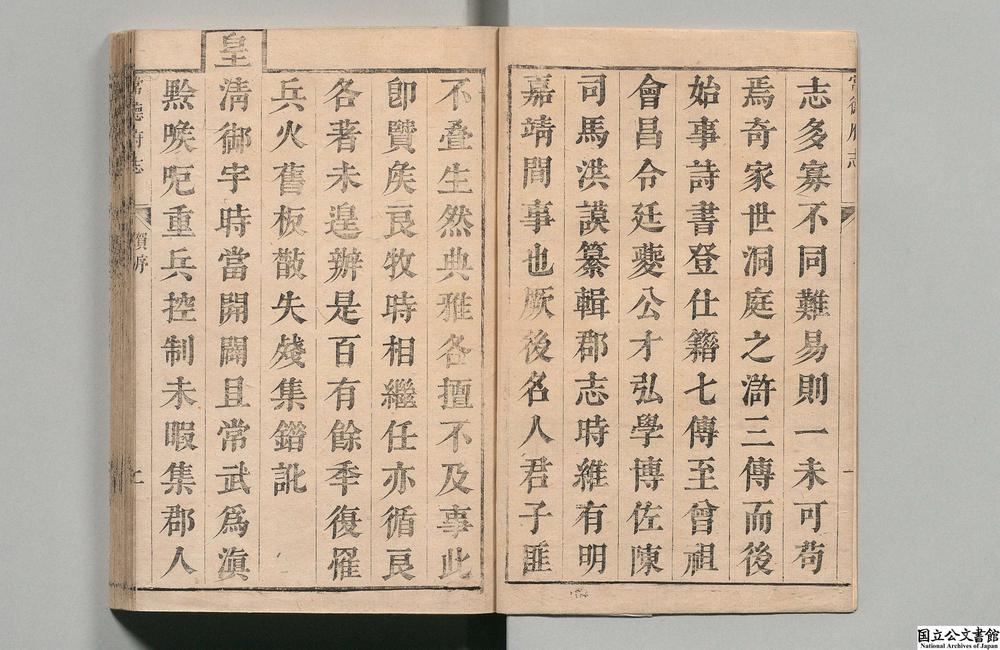 常德府志
志多寡不同難易則一未可苟
焉奇家世洞庭之滸三傳而後
始事詩書登仕籍七傳至曾祖
會昌令廷夔公才弘學博佐陳
司馬洪謨纂輯郡志時維有明
嘉靖間事也厥後名人君子匪
不疊生然典雅各擅不及事此
卽贊矦良牧時相繼任亦循良
各著未遑辦是百有餘秊復罹
兵火舊板散失殘集錯訛
皇
清御宇時當開闢且常武爲滇
黔喉咜重兵控制未暇集郡人
常德府志
賀序
七
国立公文書館
National Archives of Japan